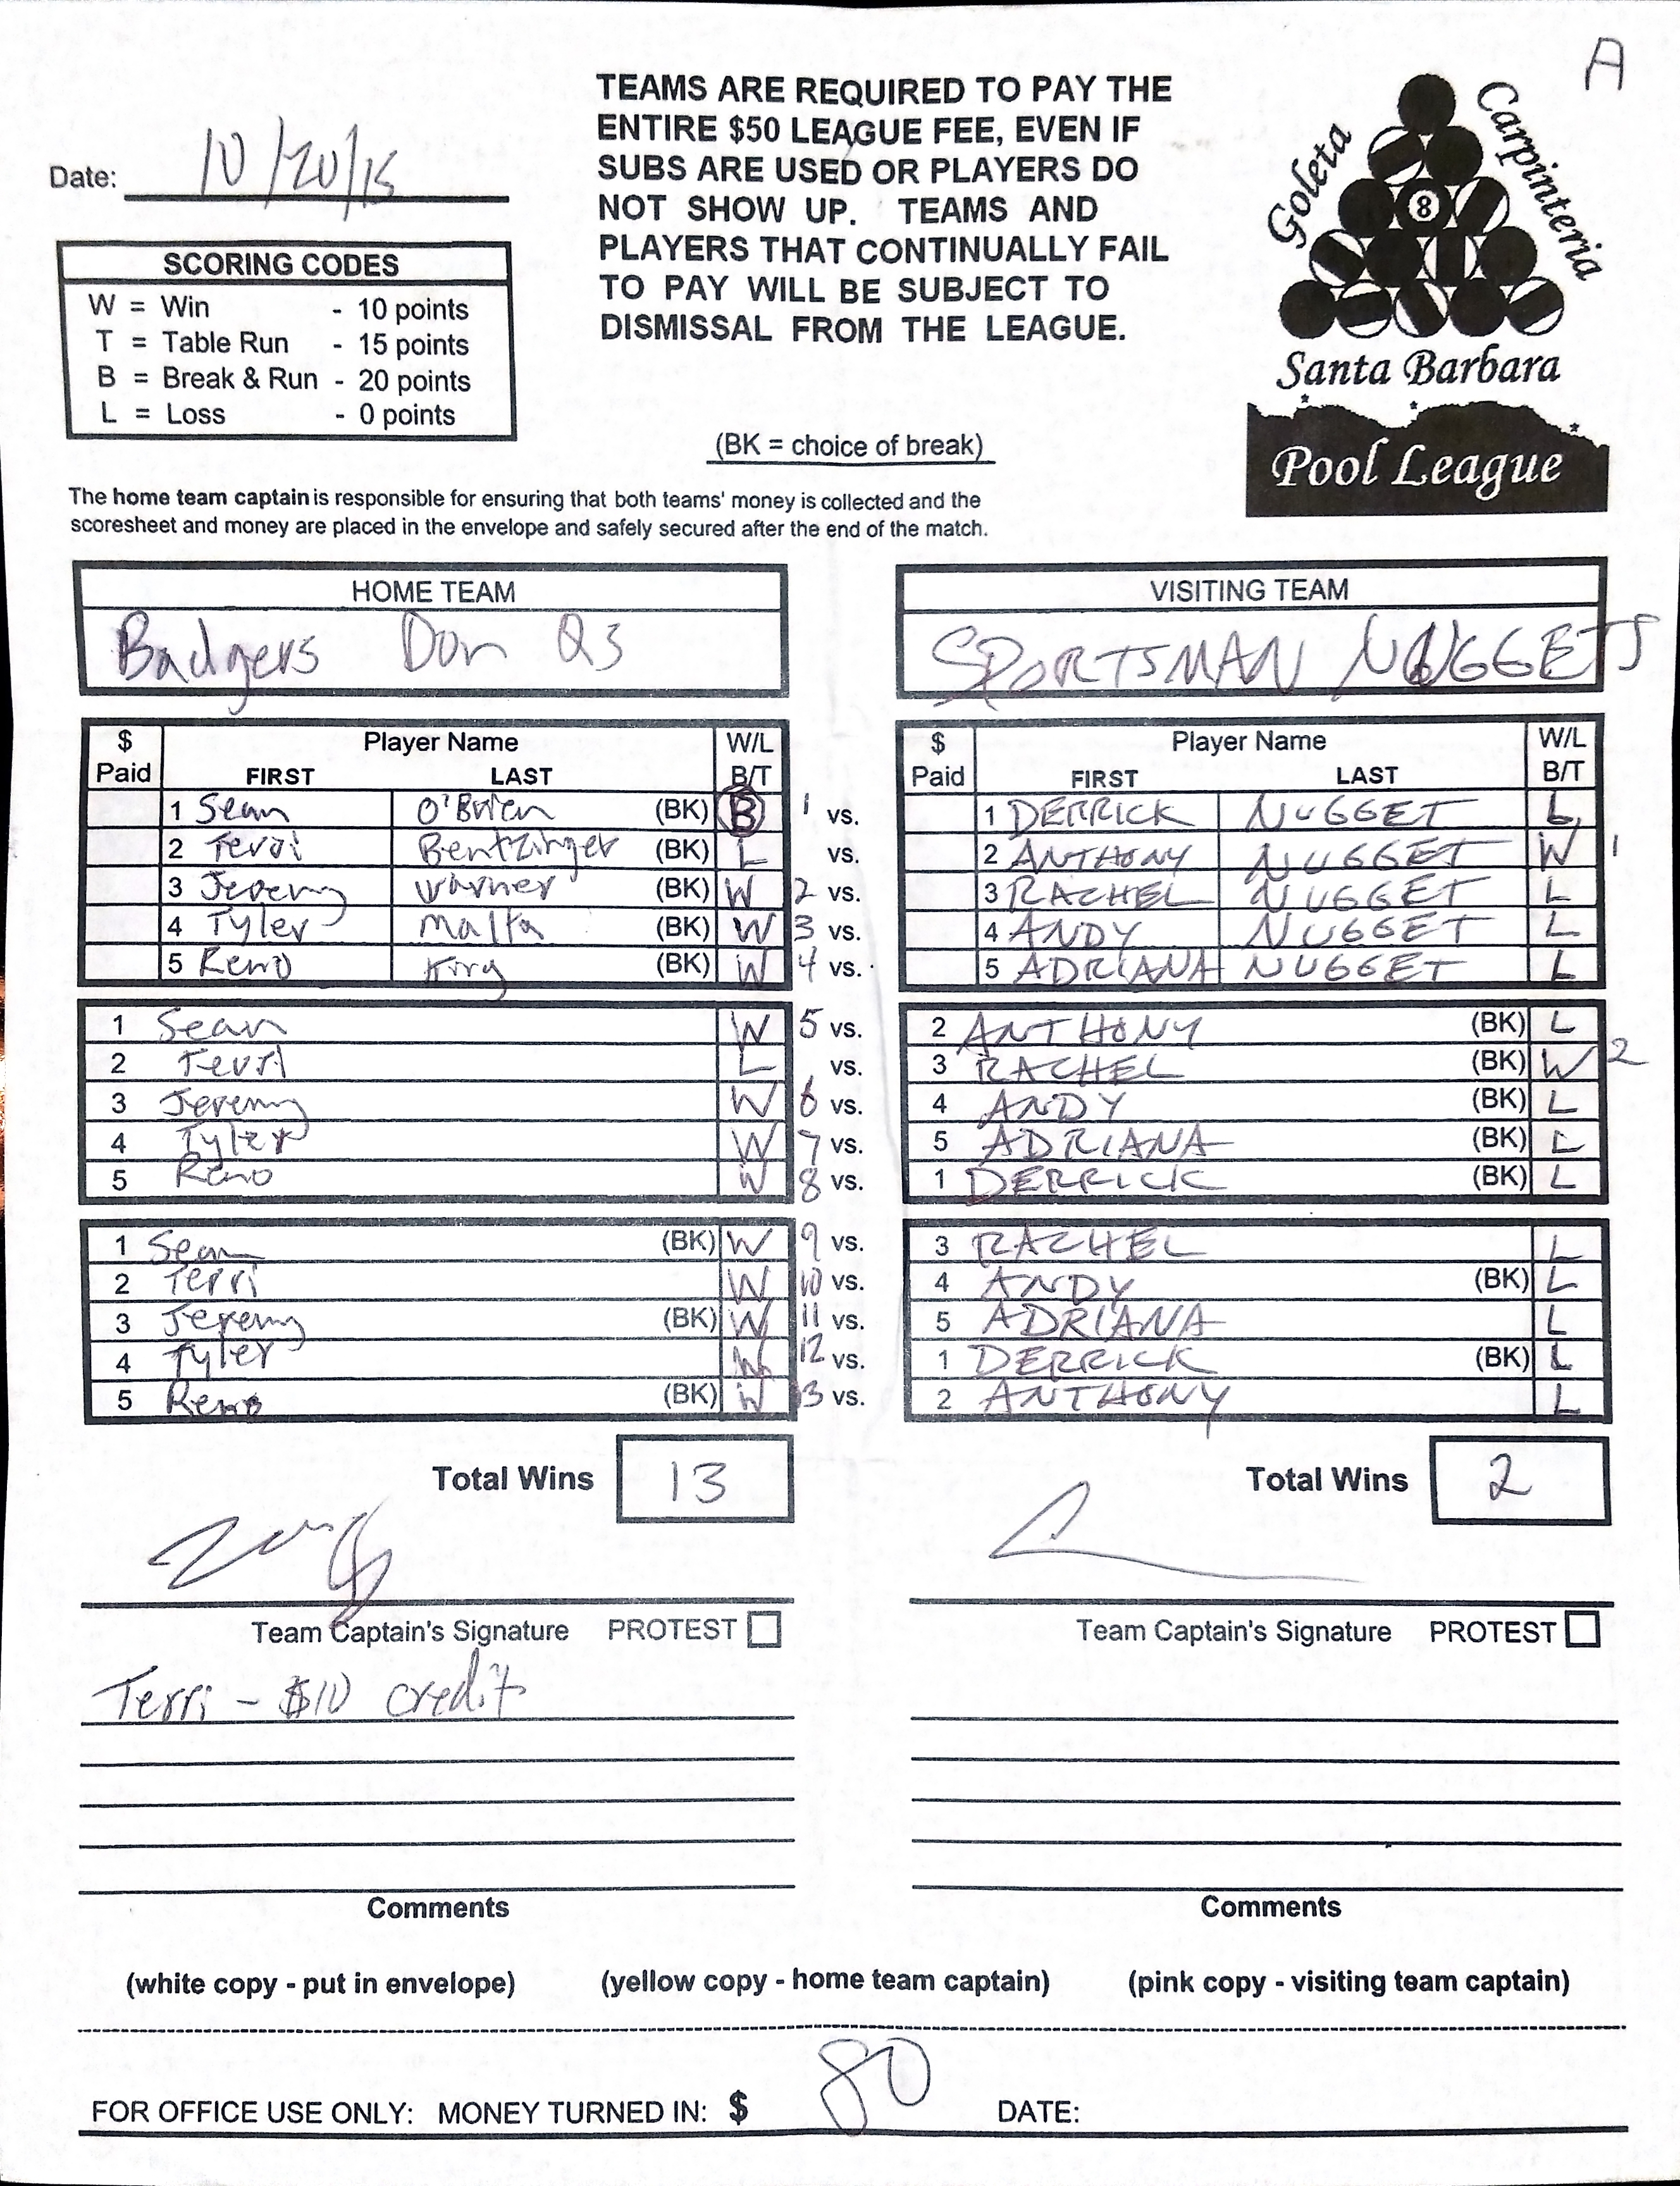 A
Date: 10/20/15
TEAMS ARE REQUIRED TO PAY THE
ENTIRE $50 LEAGUE FEE, EVEN IF
SUBS ARE USED OR PLAYERS DO
NOT SHOW UP. TEAMS AND
PLAYERS THAT CONTINUALLY FAIL
TO PAY WILL BE SUBJECT TO
DISMISSAL FROM THE LEAGUE.
Goleta
Carpinteria
8
Santa Barbara
Pool League
SCORING CODES
W = Win - 10 points
T = Table Run - 15 points
B = Break & Run - 20 points
L = Loss - 0 points
(BK = choice of break)
The home team captain is responsible for ensuring that both teams' money is collected and the
scoresheet and money are placed in the envelope and safely secured after the end of the match.
HOME TEAM VISITING TEAM
Badgers Don Q3 SPORTSMAN NUGGETS
$ Player Name W/L $ Player Name W/L
Paid FIRST LAST B/T Paid FIRST LAST B/T
1 Sean O'Brien (BK) B 1 vs. 1 DERRICK NUGGET L
2 Terri Bentzinger (BK) L vs. 2 ANTHONY NUGGET W 1
3 Jeremy Warner (BK) W 2 vs. 3 RACHEL NUGGET L
4 Tyler Malta (BK) W 3 vs. 4 ANDY NUGGET L
5 Reno King (BK) W 4 vs. 5 ADRIANA NUGGET L
1 Sean W 5 vs. 2 ANTHONY (BK) L
2 Terri L vs. 3 RACHEL (BK) W 2
3 Jeremy W 6 vs. 4 ANDY (BK) L
4 Tyler W 7 vs. 5 ADRIANA (BK) L
5 Reno W 8 vs. 1 DERRICK (BK) L
1 Sean (BK) W 9 vs. 3 RACHEL L
2 Terri W 10 vs. 4 ANDY (BK) L
3 Jeremy (BK) W 11 vs. 5 ADRIANA L
4 Tyler W 12 vs. 1 DERRICK (BK) L
5 Reno (BK) W 13 vs. 2 ANTHONY L
Total Wins 13 Total Wins 2
Team Captain's Signature PROTEST Team Captain's Signature PROTEST
Terri - $10 credit
Comments Comments
(white copy - put in envelope) (yellow copy - home team captain) (pink copy - visiting team captain)
FOR OFFICE USE ONLY: MONEY TURNED IN: $ 80 DATE: